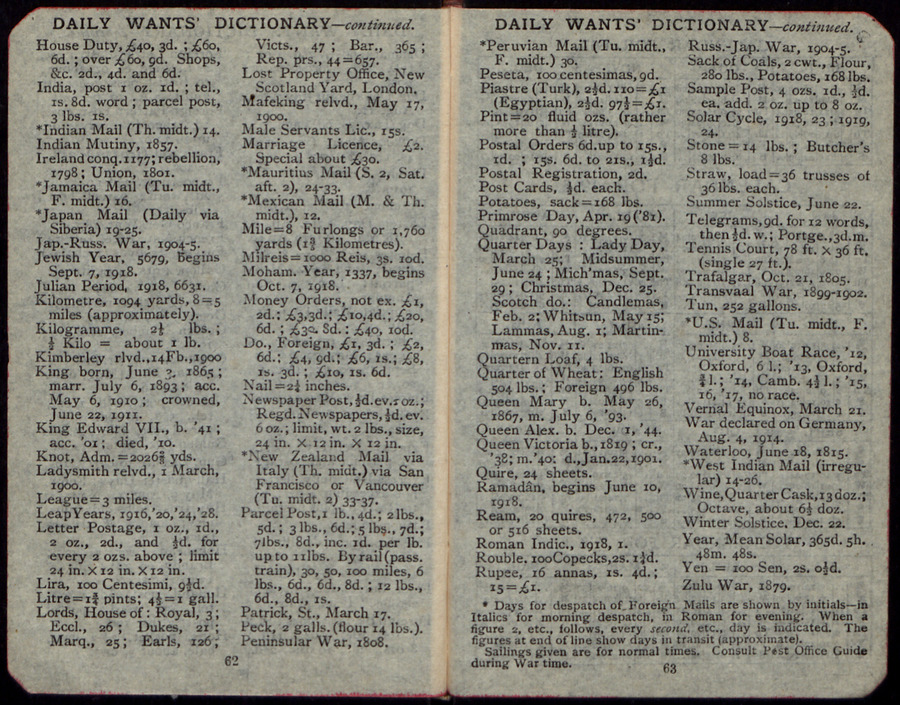 DAILY WANTS' DICTIONARY—continued.
House Duty, £40, 3d. ; £60,
6d. ; over £60, 9d. Shops,
&c. 2d., 4d. and 6d.
India, post 1 oz. 1d. ; tel.,
1s. 8d. word ; parcel post,
3 lbs. 1s.
*Indian Mail (Th. midt.) 14.
Indian Mutiny, 1857.
Ireland conq. 1177; rebellion,
1798 ; Union, 1801.
*Jamaica Mail (Tu. midt.,
F. midt.) 16.
*Japan Mail (Daily via
Siberia) 19-25.
Jap.-Russ. War, 1904-5.
Jewish Year, 5679, begins
Sept. 7, 1918.
Julian Period, 1918, 6631.
Kilometre, 1094 yards, 8=5
miles (approximately).
Kilogramme, 2¼ lbs. ;
½ Kilo = about 1 lb.
Kimberley rlvd., 14 Fb., 1900
King born, June 3, 1865 ;
marr. July 6, 1893 ; acc.
May 6, 1910 ; crowned,
June 22, 1911.
King Edward VII., b. '41 ;
acc. '01 ; died, '10.
Knot, Adm. =2026⅔ yds.
Ladysmith relvd., 1 March,
1900.
League=3 miles.
Leap Years, 1916, '20, '24, '28.
Letter Postage, 1 oz., 1d.,
2 oz., 2d., and ½d. for
every 2 ozs. above ; limit
24 in. X 12 in. X 12 in.
Lira, 100 Centesimi, 9½d.
Litre=1¾ pints; 4½=1 gall.
Lords, House of : Royal, 3 ;
Eccl., 26 ; Dukes, 21 ;
Marq., 25 ; Earls, 126 ;
Victs., 47 ; Bar., 365 ;
Rep. prs., 44=657.
Lost Property Office, New
Scotland Yard, London.
Mafeking relvd., May 17,
1900.
Male Servants Lic., 15s.
Marriage Licence, £2.
Special about £30.
*Mauritius Mail (S. 2, Sat.
aft. 2), 24-33.
*Mexican Mail (M. & Th.
midt.), 12.
Mile=8 Furlongs or 1,760
yards (1⅗ Kilometres).
Milreis=1000 Reis, 3s. 10d.
Moham. Year, 1337, begins
Oct. 7, 1918.
Money Orders, not ex. £1,
2d.: £3, 3d.; £10, 4d.; £20,
6d. ; £30. 8d. : £40, 10d.
Do., Foreign, £1, 3d. ; £2,
6d.; £4, 9d.; £6, 1s.; £8,
1s. 3d. ; £10, 1s. 6d.
Nail=2¼ inches.
Newspaper Post, ½d. ev. 5 oz.;
Regd. Newspapers, ½d. ev.
6 oz.; limit, wt. 2 lbs., size,
24 in. X 12 in. X 12 in.
*New Zealand Mail via
Italy (Th. midt.) via San
Francisco or Vancouver
(Tu. midt. 2) 33-37.
Parcel Post, 1 lb., 4d.; 2 lbs.,
5d. ; 3 lbs., 6d.; 5 lbs., 7d.;
7 lbs., 8d., inc. 1d. per lb.
up to 11 lbs. By rail (pass.
train), 30, 50, 100 miles, 6
lbs., 6d., 6d., 8d. ; 12 lbs.,
6d., 8d., 1s.
Patrick, St., March 17.
Peck, 2 galls. (flour 14 lbs.).
Peninsular War, 1808.
62
DAILY WANTS' DICTIONARY—continued.
*Peruvian Mail (Tu. midt.,
F. midt.) 30.
Peseta, 100 centesimas, 9d.
Piastre (Turk), 2½d. 110=£1
(Egyptian), 2½d. 97½=£1.
Pint=20 fluid ozs. (rather
more than ½ litre).
Postal Orders 6d. up to 15s.,
1d. ; 15s. 6d. to 21s., 1½d.
Postal Registration, 2d.
Post Cards, ½d. each.
Potatoes, sack=168 lbs.
Primrose Day, Apr. 19 ('81).
Quadrant, 90 degrees.
Quarter Days : Lady Day,
March 25; Midsummer,
June 24 ; Mich'mas, Sept.
29 ; Christmas, Dec. 25.
Scotch do.: Candlemas,
Feb. 2; Whitsun, May 15;
Lammas, Aug. 1; Martin-
mas, Nov. 11.
Quartern Loaf, 4 lbs.
Quarter of Wheat: English
504 lbs. ; Foreign 496 lbs.
Queen Mary b. May 26,
1867, m. July 6, '93.
Queen Alex. b. Dec. 1, '44.
Queen Victoria b., 1819 ; cr.,
'38; m. '40: d., Jan. 22, 1901.
Quire, 24 sheets.
Ramadân, begins June 10,
1918.
Ream, 20 quires, 472, 500
or 516 sheets.
Roman Indic., 1918, 1.
Rouble, 100 Copecks, 2s. 1½d.
Rupee, 16 annas, 1s. 4d. ;
15=£1.
Russ.-Jap. War, 1904-5.
Sack of Coals, 2 cwt., Flour,
280 lbs., Potatoes, 168 lbs.
Sample Post, 4 ozs. 1d., ½d.
ea. add. 2 oz. up to 8 oz.
Solar Cycle, 1918, 23 ; 1919,
24.
Stone = 14 lbs. ; Butcher's
8 lbs.
Straw, load=36 trusses of
36 lbs. each.
Summer Solstice, June 22.
Telegrams, 9d. for 12 words,
then ½d. w.; Portge., 3d. m.
Tennis Court, 78 ft. X 36 ft.
(single 27 ft.).
Trafalgar, Oct. 21, 1805.
Transvaal War, 1899-1902.
Tun, 252 gallons.
*U.S. Mail (Tu. midt., F.
midt.) 8.
University Boat Race, '12,
Oxford, 6 l.; '13, Oxford,
¾ l.; '14, Camb. 4½ l.; '15,
16, '17, no race.
Vernal Equinox, March 21.
War declared on Germany,
Aug. 4, 1914.
Waterloo, June 18, 1815.
*West Indian Mail (irregu-
lar) 14-26.
Wine, Quarter Cask, 13 doz.;
Octave, about 6½ doz.
Winter Solstice, Dec. 22.
Year, Mean Solar, 365d. 5h.
48m. 48s.
Yen = 100 Sen, 2s. 0½d.
Zulu War, 1879.
* Days for despatch of Foreign Mails are shown by initials—in
Italics for morning despatch, in Roman for evening. When a
figure 2, etc., follows, every second, etc., day is indicated. The
figures at end of line show days in transit (approximate).
Sailings given are for normal times. Consult Post Office Guide
during War time.
63